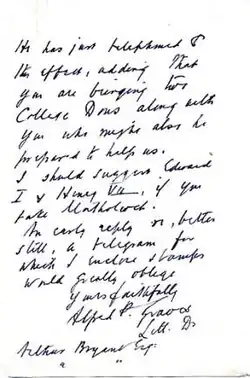 He has just telephoned to
this effect, adding that
you are bringing two
College Dons along with
you who might also be
prepared to help us.
I should suggest Edward
I & Henry VIII, if you
take
An early reply or, better
still, a telegram for
which I enclose stamps
would greatly oblige
Yours faithfully
Alfred P. Graves
Litt. D.
Arthur Bryant Esq.
"        "